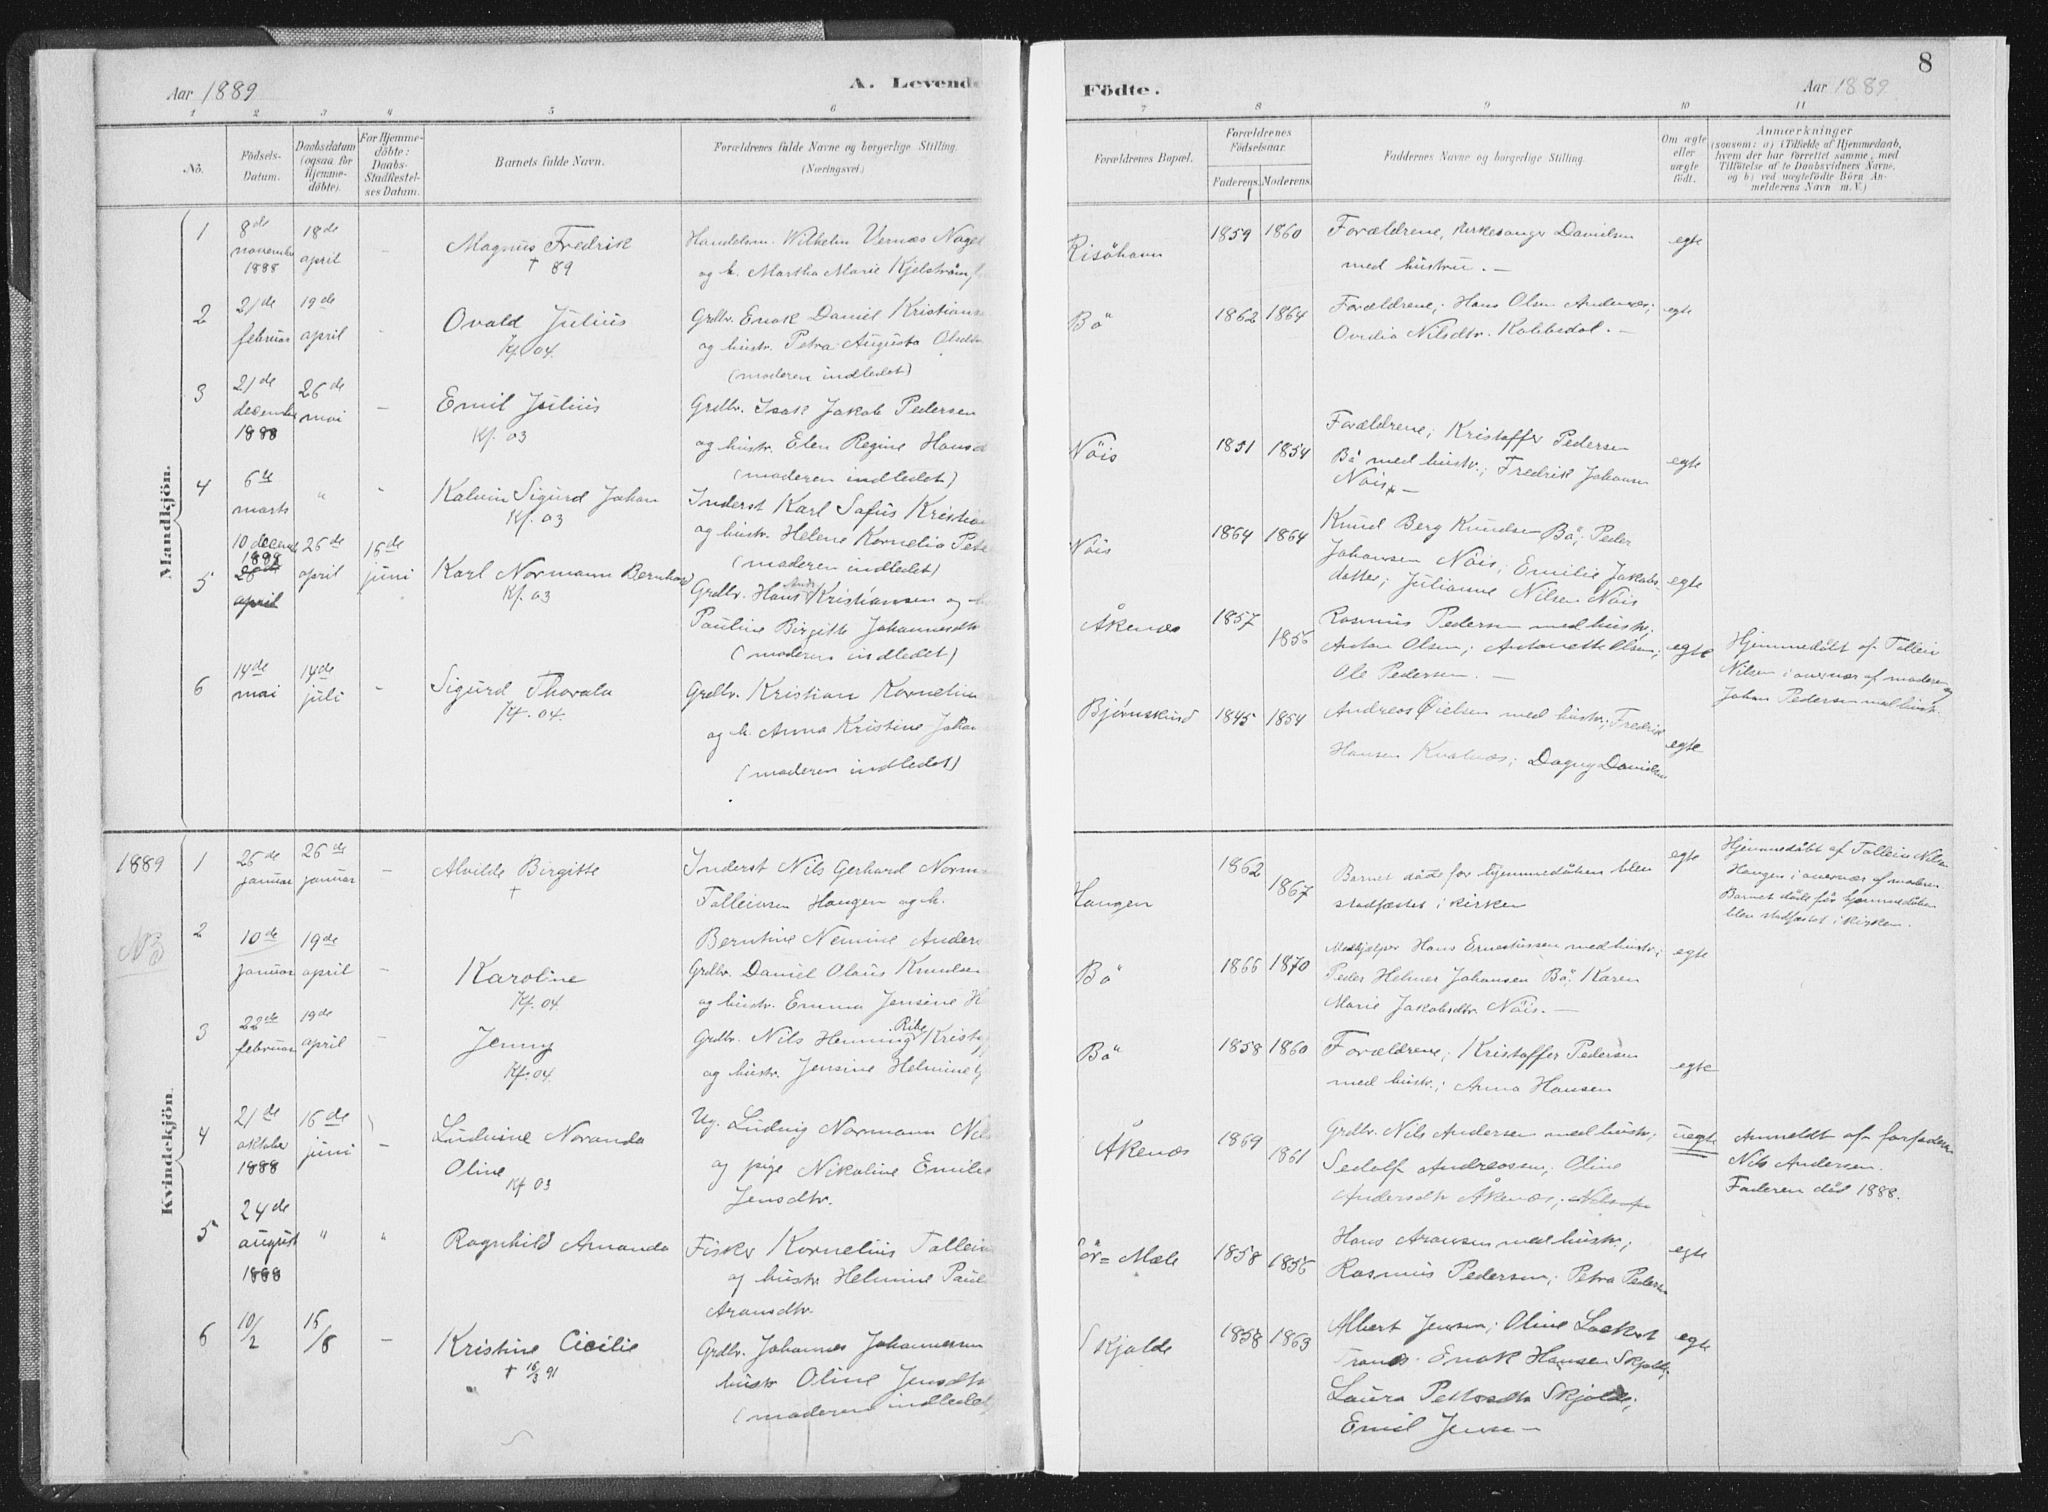 Aar 1889
A. Levende
1 2 3 4 5 6
No.
Födsels-
Datum.
Daabsdatum
(ogsaa for
Hjemme-
døbte).
For Hjemme-
døbte:
Daabs-
Stadfæstel-
ses Datum.
Barnets fulde Navn.
Forældrenes fulde Navne og borgerlige Stilling.
(Næringsvei.)
Mandkjön.
1 8de 18de
november april -
1888
Magnus Fredrik
† 89
Handelsm. Wilhelm Vernæs Nagel
og h. Martha Marie Kjelström
2 21de 19de
februar april -
Ovald Julius
Kf. 04.
Grdbr. Enok Daniel Kristians
og hustr. Petra Augusta Olsdtr
(moderen indledet)
3 21de 26de
december mai -
1888
Emil Julius
Kf. 03
Grdbr. Isak Jakob Pedersen
og hustr. Elen Regine Hansd
(moderen indledet)
4 6te " -
marts
Kalvin Sigurd Johan
Kf. 03
Inderst Karl Sofus Kristia
og hustr. Helene Kornelia Pede
(moderen indledet)
10 decemb 26de 16de
1888
5 28de april juni
april
Karl Normann Bernhard
Kf. 03
Grdbr. Hans Andr. Kristiansen og h
Pauline Birgitte Johannesdtr
(moderen indledet)
6 14de 14de
mai juli -
Sigurd Thorala
Kf. 04.
Grdbr. Kristian Kornelius
og h. Anna Kristine Johan
(moderen indledet)
Kvindekjön.
1889 1 26de 26de
januar januar -
Alvilde Birgitte
†
Inderst Nils Gerhard Norma
Tolleivsen Haugen og h.
Berntine Nemine Anders
2 10de 19de
NB
januar april -
Karoline
Kf. 04.
Grdbr. Daniel Olaus Knudsen
og hustr. Emma Jensine H
3 22de 19de
februar april -
Jenny
Kf. 04
Grdbr. Nils Henning Ribe Kristof
og hustr. Jensine Helmine
4 21de 16de
oktober juni -
1888
Ludvine Noranda
Oline
Kf 03
Ug. Ludvig Normann Nils
og pige Nikoline Emilie
Jensdtr.
24de
5 august " "
1888
Ragnhild Amanda
Fisker Kornelius Tollein
og hustr. Helmine Paul
Aronsdtr
6 10/2 15/8 -
Kristine Cicilie
† 16/3 91
Grdbr. Johannes Johannessen
hustr Oline Jensdtr
(moderen indledet
8
Födte.
Aar 1889
7 8 9 10 11
Forældrenes Bopæl.
Forældrenes
Födselsaar.
Faderens. Moderens.
Faddernes Navne og borgerlige Stilling.
Om ægte
eller
uægte
födt.
Anmærkninger
(saasom: a) i Tilfælde af Hjemmedaab,
hvem der har forrettet samme, med
Tilföielse af to Daabsvidners Navne,
og b) ved uægtefödte Börn An-
melderens Navn m. V.)
Risöhavn 1859 1860
Forældrene, kirkesanger Danielsen
med hustru. —
egte
Bö 1862 1864
Forældrene; Hans Olsen Andenæs;
Ovidia Nilsdtr. Kobbedal. —
egte
Nöis 1851 1854
Forældrene; Kristoffer Pedersen
Bö med hustr.; Fredrik Johansen
Nöis. —
egte
Nöis 1864 1864
Knud Berg Knudsen Bö; Peder
Johansen Nöis; Emilie Jakobs
datter; Julianne Nilsen Nöis
egte
Åkenæs 1857 1856
Rasmus Pedersen med hustr;
Anton Olsen; Antonette Olsen;
Ole Pedersen. —
egte
Hjemmedöbt af Tollein
Nilsen i overvær af moderen og
Johan Pedersen med hustr.
Bjørnskind 1845 1854
Andreas Øielsen med hustr.; Fredrik
Hansen Kvalnæs; Dagny Danielsen
egte
Haugen 1862 1867
Barnet döde før hjemmedåben blev
stadfæstet i kirken
egte
Hjemmedöbt af Tollein Nilsen
Haugen i overvær af moderen.
Barnet döde før hjemmedåben
blev stadfæstet i kirken.
Bö 1866 1870
Medhjælper Hans Ernestussen med hustr.;
Peder Helmer Johansen Bö; Karen
Marie Jakobsdtr Nöis. —
egte
Bö 1858 1860
Forældrene; Kristoffer Pedersen
med hustr.; Anna Hansen
egte
Åkenæs 1869 1861
Grdbr. Nils Andersen med hustr;
Sedolf Andreassen; Oline
Andersdtr Åkenæs;
uegte
Anmeldt af farfaderen
Nils Andersen.
Faderen död 1888.
Sör=Mæle 1858 1856
Hans Aronsen med hustr.;
Rasmus Pedersen; Petra Peders
egte
Skjolde 1858 1863
Albert Jensen; Oline Lockert
Tranes. Enok Hansen Skjolde;
Laura Pettersdtr Skjolde;
Emil Jensen —
egte